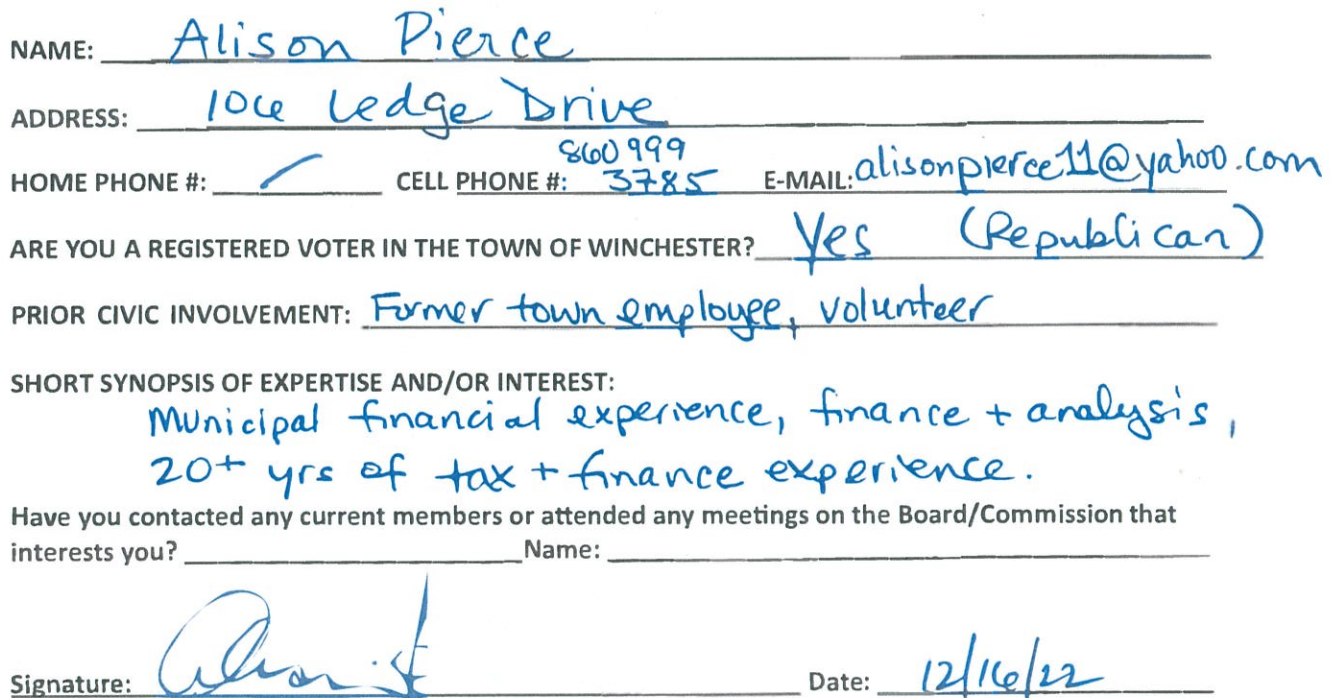 NAME: Alison Pierce
ADDRESS: 106 Ledge Drive
860 999
HOME PHONE #: / CELL PHONE #: 3785 E-MAIL: alisonpierce11@yahoo.com
ARE YOU A REGISTERED VOTER IN THE TOWN OF WINCHESTER? Yes (Republican)
PRIOR CIVIC INVOLVEMENT: Former town employee, volunteer
SHORT SYNOPSIS OF EXPERTISE AND/OR INTEREST:
Municipal financial experience, finance + analysis,
20+ yrs of tax + finance experience.
Have you contacted any current members or attended any meetings on the Board/Commission that
interests you? Name:
Signature: Date: 12/16/22